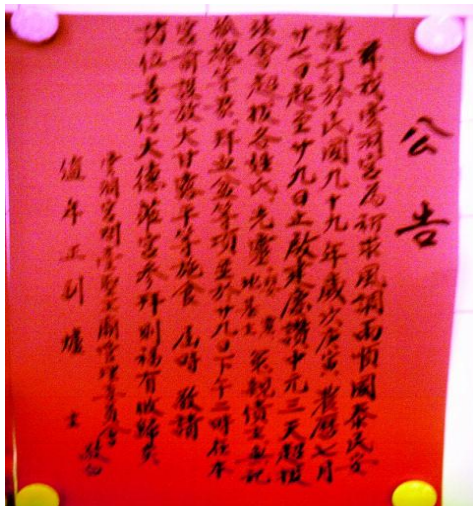 公告
爲我雲洞宮爲祈求風調雨順國泰民安
謹訂於民國九十九年歲次庚寅農曆七月
廿七日起至廿九日止啟建慶讚中元三天超拔
法會超拔各姓氏先靈地基主冤親債主無祀
孤魂等眾拜血盆等項並於廿九日下午二時在本
宮前謹放大甘露平等施食屆時敬請
諸位善信大德蒞宮參拜則福有攸歸矣
雲洞宮開臺聖王廟管理委員會
值年正副爐主敬白